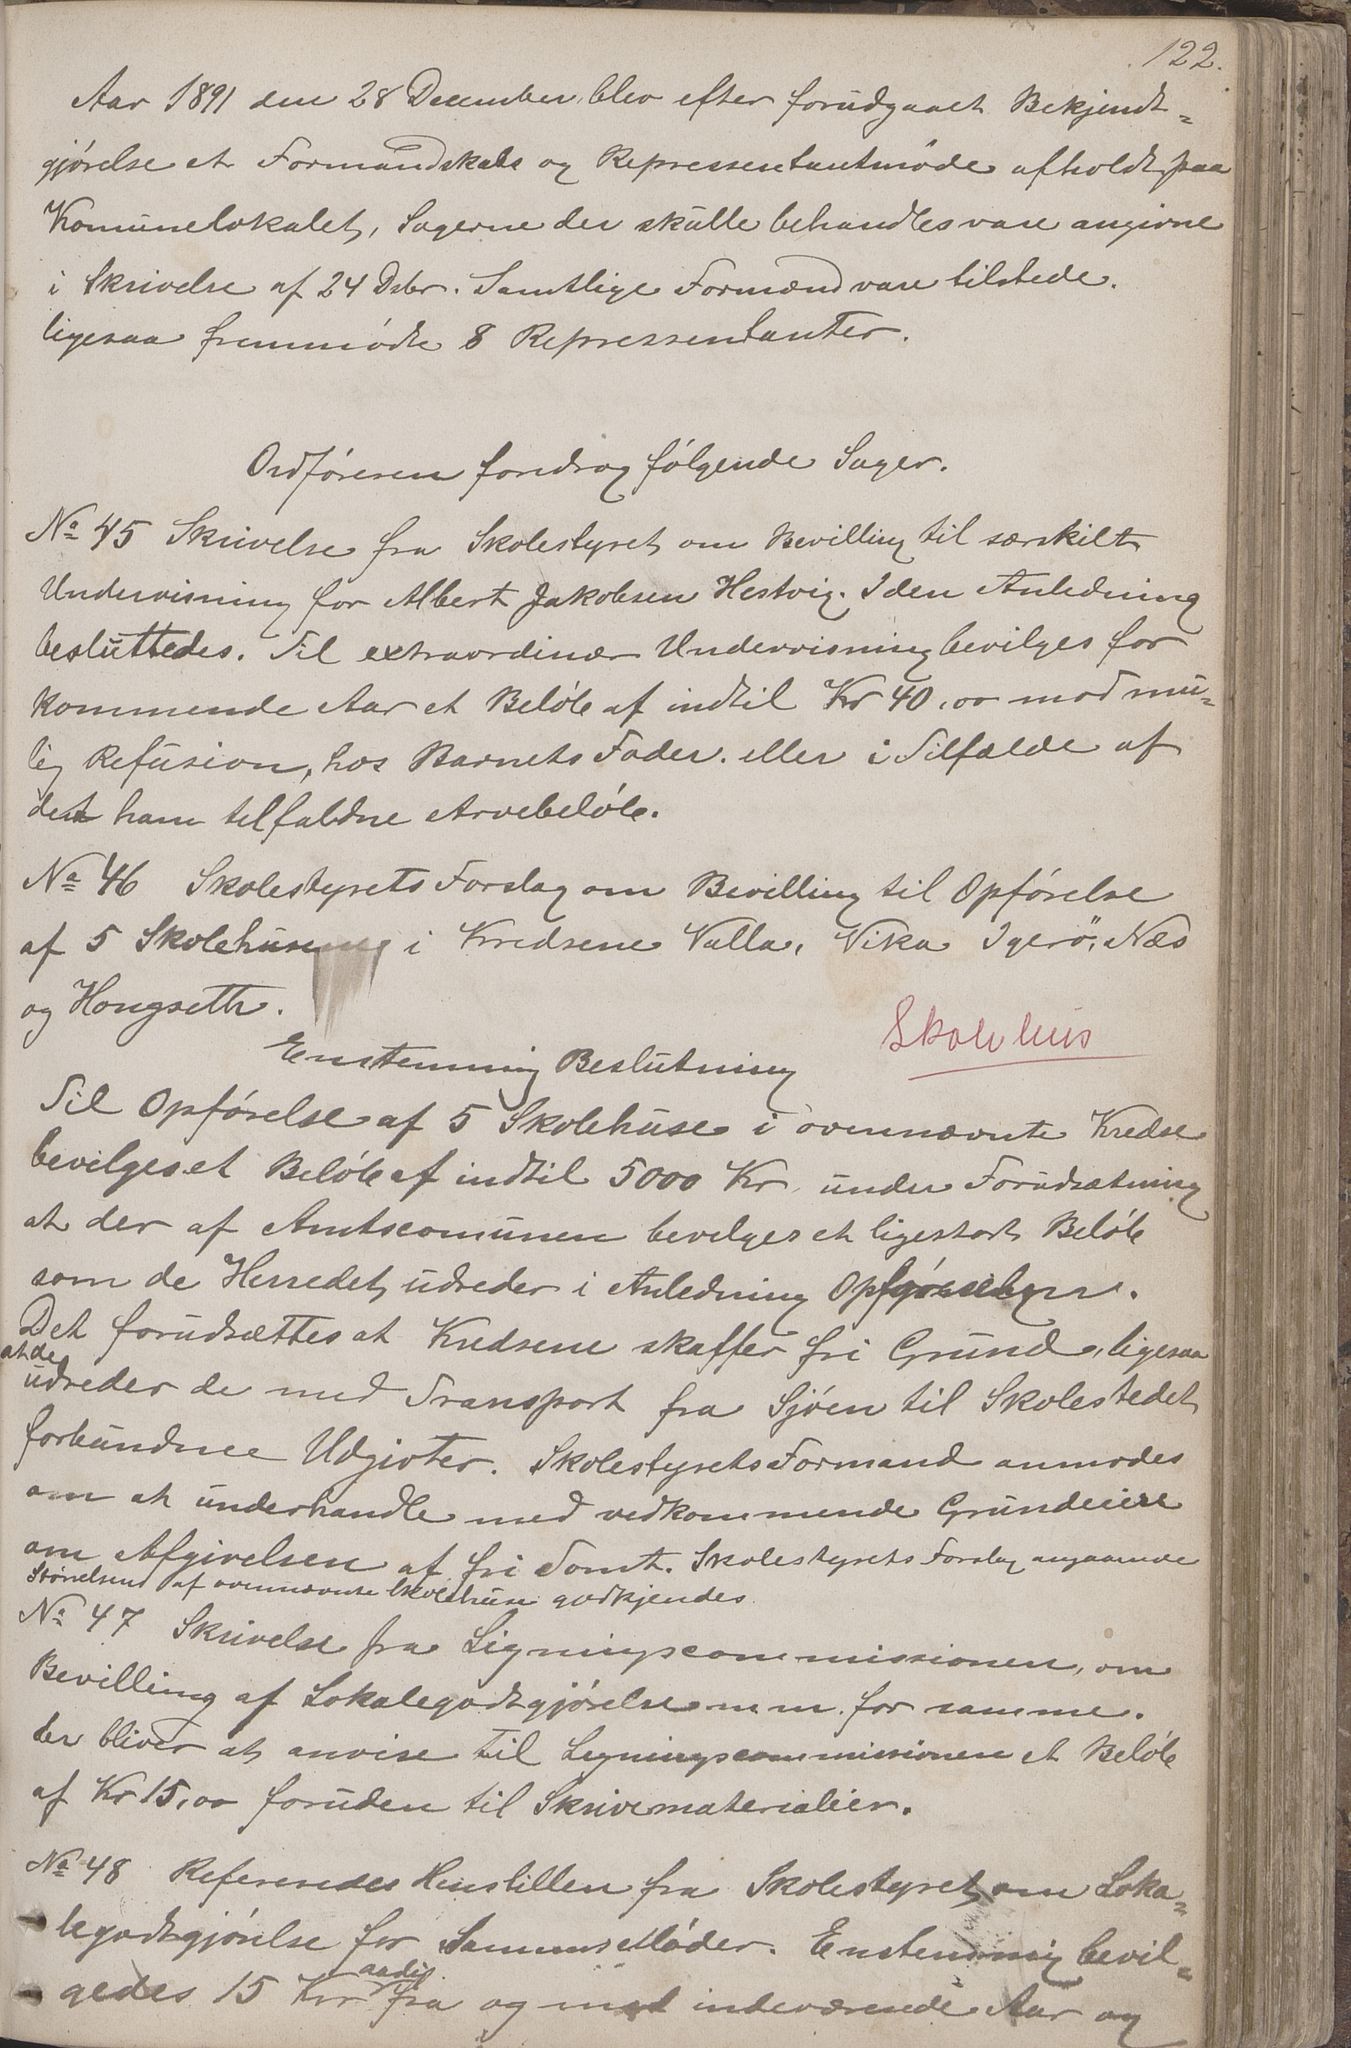 122.
Aar 1891 den 28 December blev efter forudgaaet Bekjendt-
gjørelse et Formandskabs og Repressentantmøde afholdt paa
Komunelokalet, Sagerne der skulle behandles vare angivne
i Skrivelse af 24 Dsbr. Samtlige Formænd vare tilstede.
ligesaa fremmødte 8 Repressentanter.
Ordføreren foredrog følgende Sager.
No 45 Skrivelse fra Skolestyret om Bevilling til særskilt
Undervisning for Albert Jakobsen Hestvig. I den Anledning
besluttedes. Til extraordinær Undervisning bevilges for
kommende Aar et Beløb af indtil Kr 40,00 mod mu-
lig Refusion, hos Barnets Fader. eller i Tilfælde af
det ham tilfaldne Arvebeløb.
No 46 Skolestyrets Forslag om Bevilling til Opførelse
af 5 Skolehuse i Kredsene Valla, Vika Igerö, Næs
og Hongseth.
Skolehus
Enstemmig Beslutning
Til Opførelse af 5 Skolehuse i ovennævnte Kredse
bevilges et Beløb af indtil 5000 Kr under Forudsætning
at der af Amtscomunen bevilges et ligestort Beløb
som de Herredet udreder i Anledning Opførelsen.
Det forudsættes at Kredsene skaffer fri Grund, ligesaa
at de
udreder de med Transport fra Sjøen til Skolestedet
forbundne Udgivter. Skolestyrets Formand anmodes
om at underhandle med vedkommende Grundeiere
om Afgivelsen af fri Tomt. Skolestyrets Forslag angaaende
Størrelsen af ovennævnte Skolehuse godkjendes
No 47 Skrivelse fra Ligningscommissionen, om
Bevilling af Lokalegodtgjørelse m.m. for samme.
der bliver at anvise til Ligningscommissionen et Beløb
af Kr 15,00 foruden til Skrivematerialier.
No 48 Refereredes Henstillen fra Skolestyret om Loka-
legodtgjørelse for Sammes Møder. Enstemmig bevil-
aarlig
gedes 15 Kr fra og med indeværende Aar og